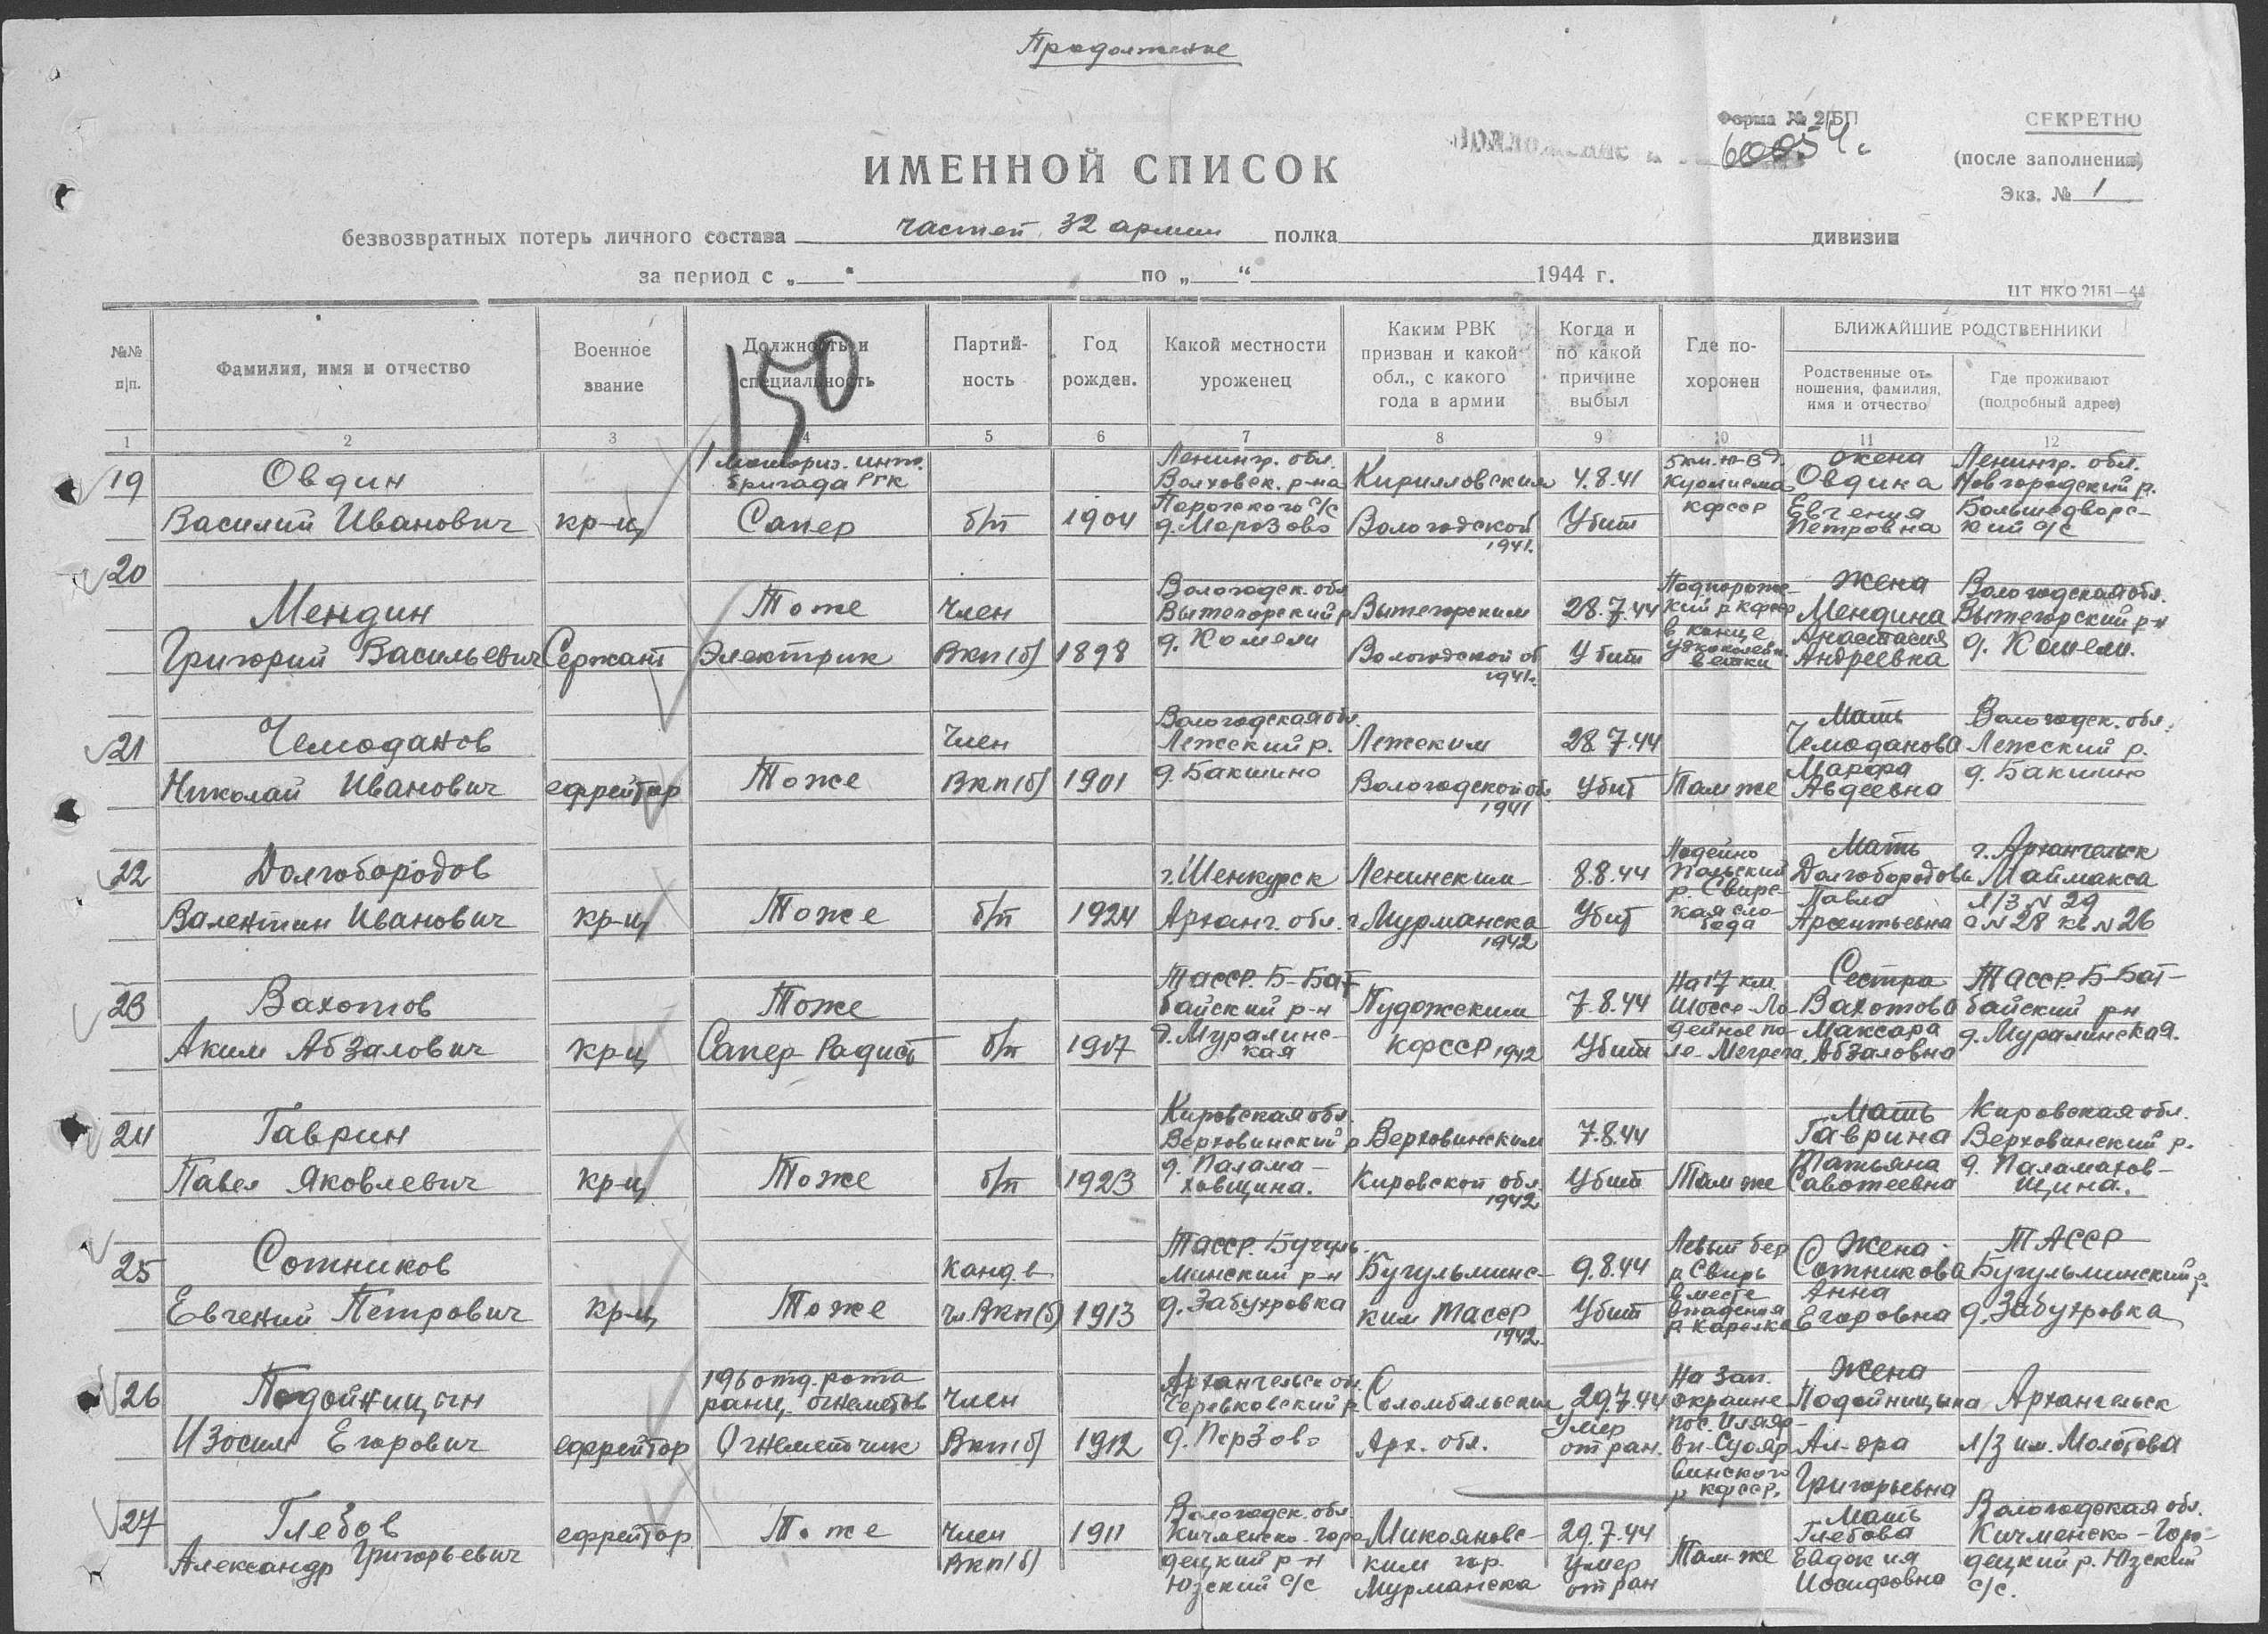 Продолжение
Форма № 2/БП
СЕКРЕТНО
60054с
(после заполнения)
Экз. № 1
ИМЕННОЙ СПИСОК
безвозвратных потерь личного состава частей 32 армии полка дивизии
за период с „ “ по „ “ 1944 г.
ЦТ НКО 2151—44
150
№№ п|п.
Фамилия, имя и отчество
Военное звание
Должность и специальность
Партий- ность
Год рожден.
Какой местности уроженец
Каким РВК призван и какой обл., с какого года в армии
Когда и по какой причине выбыл
Где по- хоронен
БЛИЖАЙШИЕ РОДСТВЕННИКИ
Родственные от- ношения, фамилия, имя и отчество
Где проживают (подробный адрес)
1 2 3 4 5 6 7 8 9 10 11 12
19 Овдин Василий Иванович
кр-ц
1 моториз. инж. бригада РГК Сапер
б/п
1904
Ленингр. обл. Волховск. р-на Порожского с/с д. Морозово
Кирилловским Вологодской 1941.
4.8.41 Убит
5 км. ю-в д. Куолисма КФССР
жена Овдина Евгения Петровна
Ленингр. обл. Новгородский р. Большедворс- кий с/с
20 Мендин Григорий Васильевич
Сержант
Тоже Электрик
Член ВКП(б)
1898
Вологодск. обл Вытегорский р д. Камели
Вытегорским Вологодской об 1941г.
28.7.44 Убит
Подпороже- кий р КФССР в конце узкоколейн. ветки
Жена Мендина Анастасия Андреевна
Вологодская обл. Вытегорский р-н д. Камели.
21 Чемоданов Николай Иванович
ефрейтор
Тоже
Член ВКП(б)
1901
Вологодская обл. Лежский р. д. Бакшино
Лежским Вологодской об. 1941
28.7.44 Убит
Там же
Мать Чемоданова Марфа Авдеевна
Вологодск. обл. Лежский р. д. Бакшино
22 Долгобородов Валентин Иванович
кр-ц
Тоже
б/п
1924
г. Шенкурск Арханг. обл.
Ленинским г. Мурманска 1942
8.8.44 Убит
Лодейно Польский р. Свирс- кая сло- бода
Мать Долгобородова Павла Арсентьевна
г. Архангельск Маймакса Л/З № 29 д № 28 кв № 26
23 Вахотов Аким Абзалович
кр-ц
Тоже Сапер Радист
б/п
1907
ТАССР. Б-Бат- байский р-н д. Муралинс- кая
Пудожским КФССР 1942
7.8.44 Убит
На 17 км. Шоссе Ло- дейное по- ле-Мегрега.
Сестра Вахотова Максара Абзаловна
ТАССР. Б-Бат- байский р-н д. Муралинская.
24 Гаврин Павел Яковлевич
кр-ц
Тоже
б/п
1923
Кировская обл. Верховинский р д. Палама- ховщина.
Верховинским Кировской обл. 1942
7.8.44 Убит
Там же
Мать Гаврина Татьяна Савотеевна
Кировская обл. Верховинский р. д. Паламахов- щина.
25 Сотников Евгений Петрович
кр-ц
Тоже
канд. в чл. ВКП(б)
1913
ТАССР. Бугуль- минский р-н д. Забугровка
Бугульминс- ким ТАССР 1942
9.8.44 Убит
Левый бер р. Свирь в месте впадения р Карелка
Жена Сотникова Анна Егоровна
ТАССР Бугульминский р. д. Забугровка
26 Подойницын Изосим Егорович
ефрейтор
196 отд. рота ранц. огнеметов Огнеметчик
Член ВКП(б)
1912
Архангельск обл. Серевковский р д. Перзово
Соломбальским Арх. обл.
29.7.44 Умер от ран.
На зап. окраине пос. Иляяр- ви Суояр- винского р КФССР.
Жена Подойницына Ал-дра Григорьевна
Архангельск л/з им. Молотова
27 Глебов Александр Григорьевич
ефрейтор
Тоже
Член ВКП(б)
1911
Вологодск. обл. Кичменско-Горо- децкий р-н Юзский с/с
Микояновс- ким гор. Мурманска
29.7.44 Умер от ран
Там-же
Мать Глебова Евдокия Иосифовна
Вологодская обл. Кичменско-Горо- децкий р. Юзский с/с.